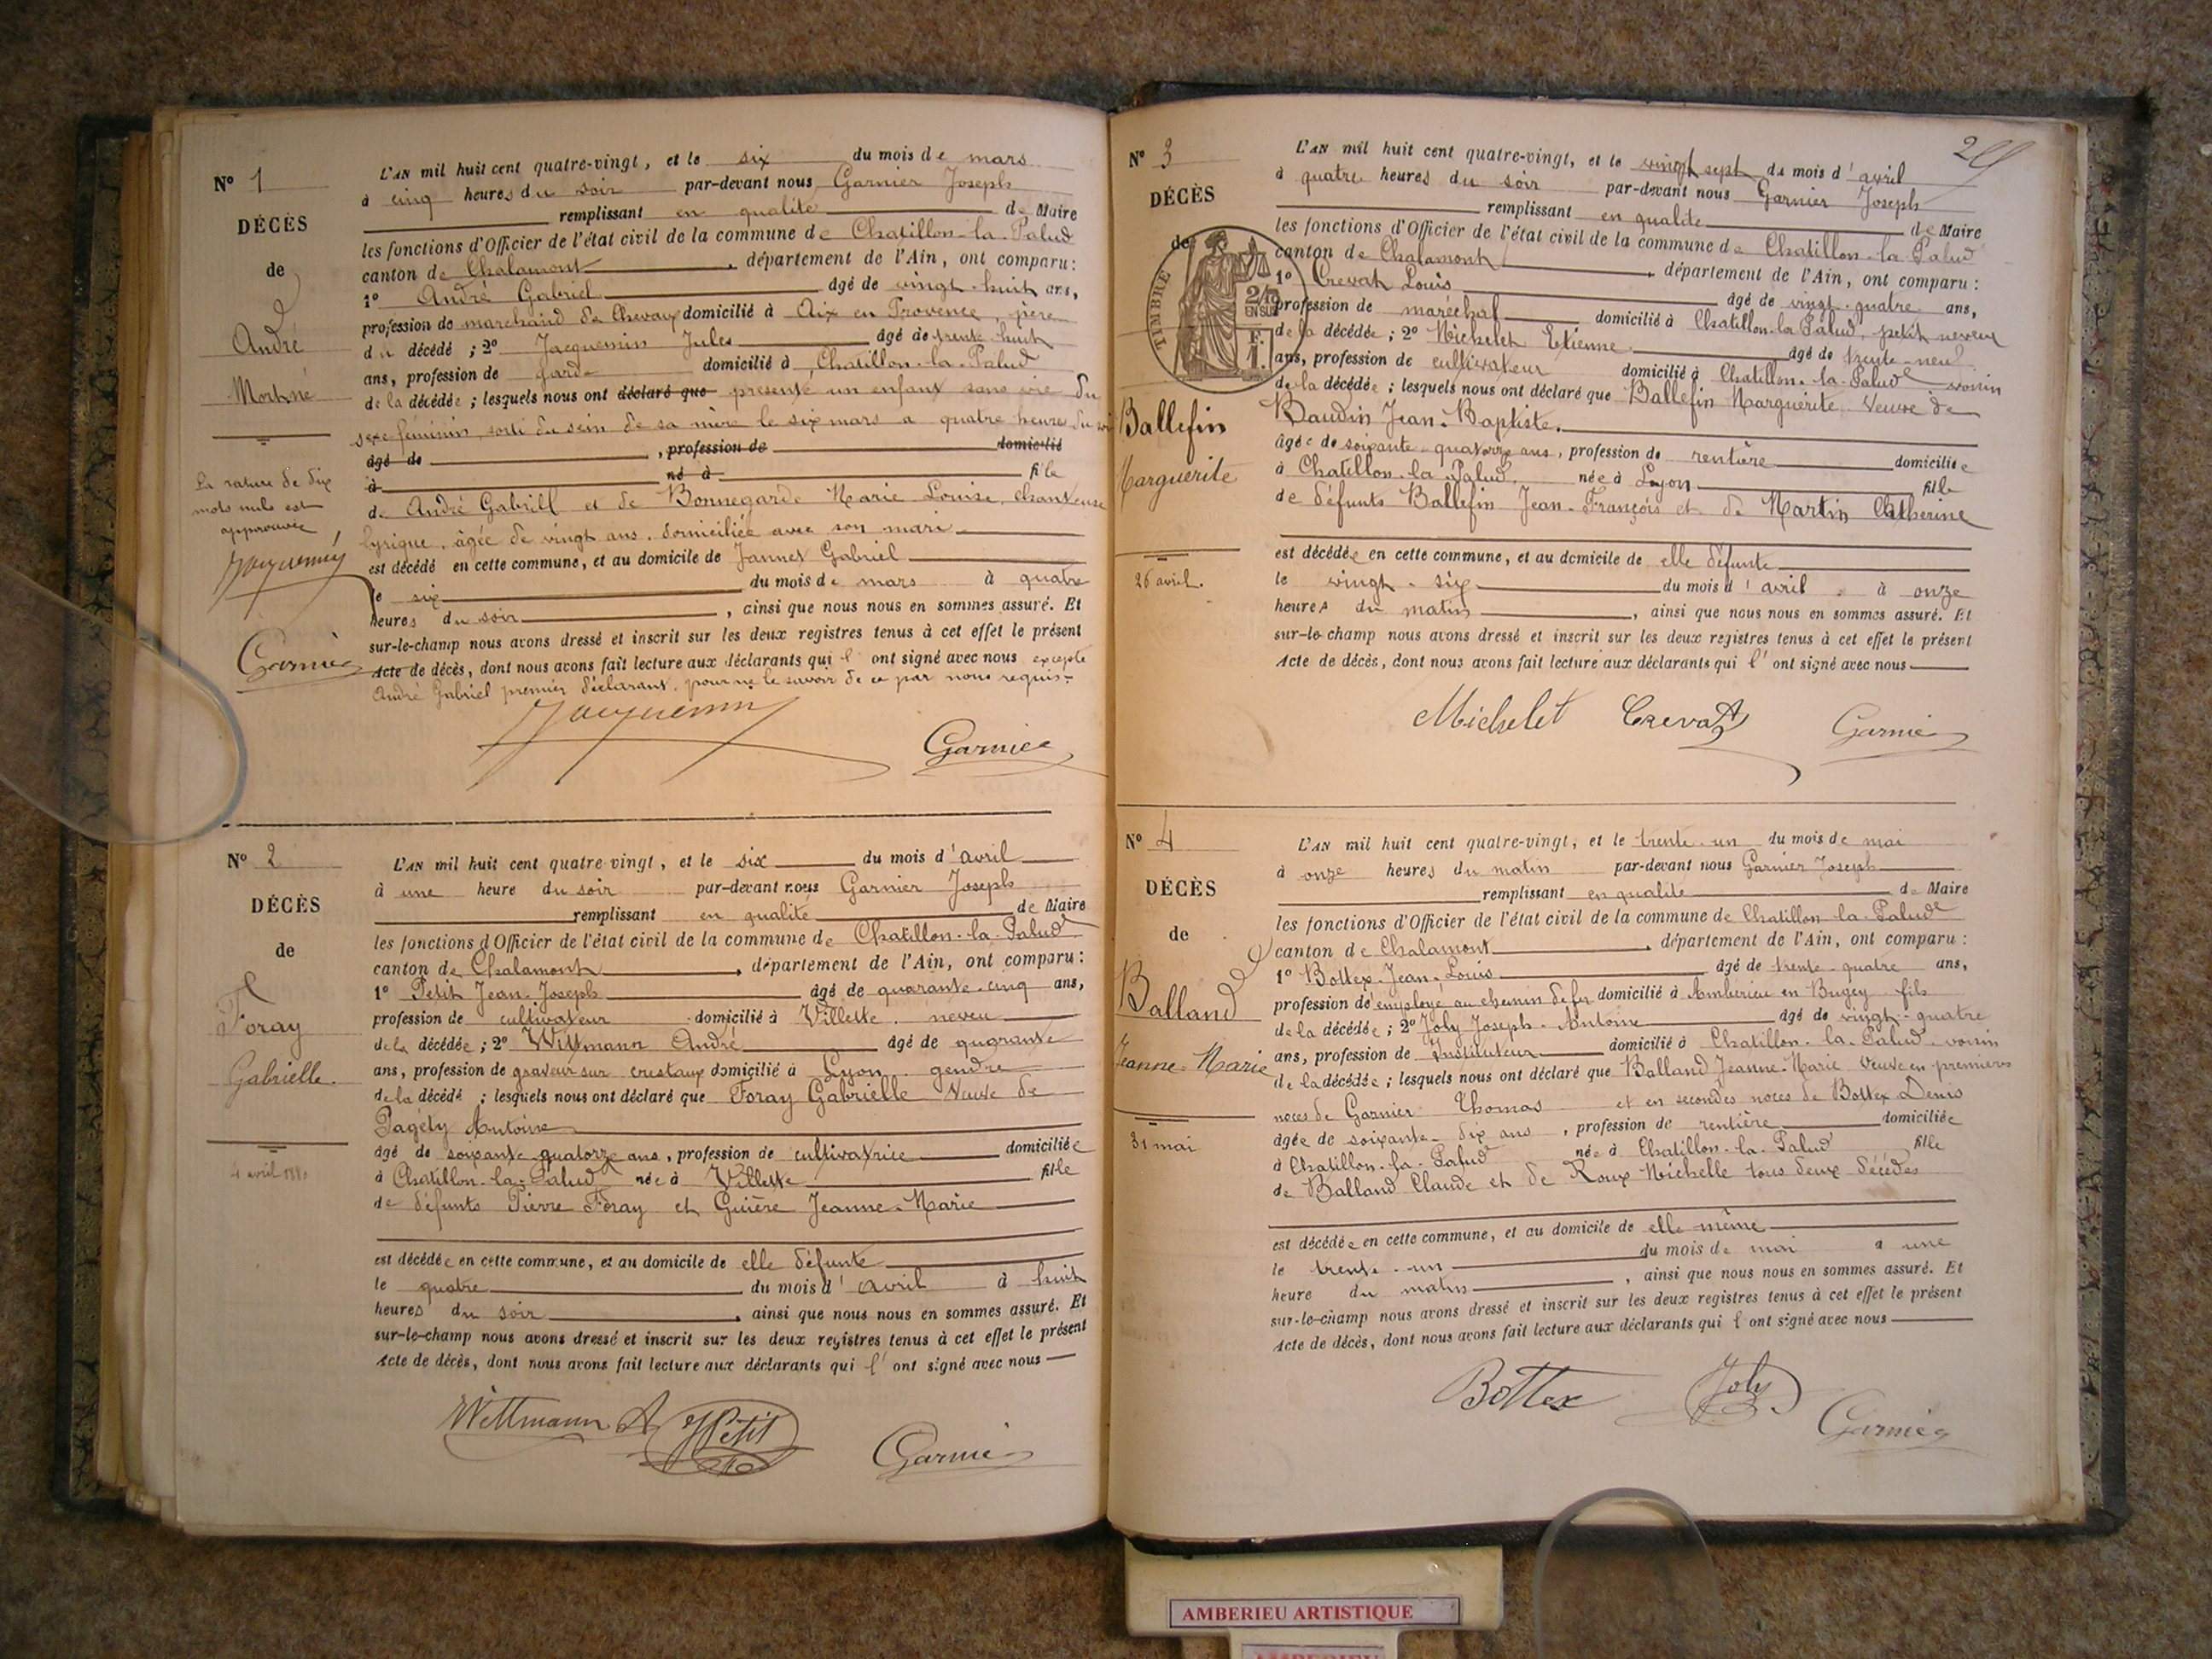 N° 1
DÉCÈS
de
André
Mort-né
La rature de dix
mots nuls est
approuvée
Jacquemin
Garnier
L'AN mil huit cent quatre-vingt, et le six du mois de mars
à cinq heures du soir par-devant nous Garnier Joseph
remplissant en qualité de Maire
les fonctions d'Officier de l'état civil de la commune de Chatillon-la-Palud
canton de Chalamont, département de l'Ain, ont comparu:
1° André Gabriel âgé de vingt-huit ans,
profession de marchand de Chevaux domicilié à Aix en Provence, père
du décédé; 2° Jacquemin Jules âgé de trente huit
ans, profession de garde domicilié à Chatillon-la-Palud
de la décédée; lesquels nous ont déclaré que présenté un enfant sans vie du
sexe féminin, sorti du sein de sa mère le six mars a quatre heures du soir
âgé de, profession de domicilié
à né à fille
de André Gabriell et de Bonnegarde Marie Louise, chanteuse
lyrique, âgée de vingt ans, domiciliée avec son mari
est décédé en cette commune, et au domicile de Jannet Gabriel
le six du mois de mars à quatre
heures du soir, ainsi que nous nous en sommes assuré. Et
sur-le-champ nous avons dressé et inscrit sur les deux registres tenus à cet effet le présent
Acte de décès, dont nous avons fait lecture aux déclarants qui l'ont signé avec nous excepté
André Gabriel premier déclarant, pour ne le savoir de ce par nous requis.
Jacquemin
Garnier
N° 2
DÉCÈS
de
Foray
Gabrielle.
4 avril 1880
L'AN mil huit cent quatre-vingt, et le six du mois d'avril
à une heure du soir par-devant nous Garnier Joseph
remplissant en qualité de Maire
les fonctions d'Officier de l'état civil de la commune de Chatillon-la-Palud
canton de Chalamont, département de l'Ain, ont comparu:
1° Petit Jean-Joseph âgé de quarante-cinq ans,
profession de cultivateur domicilié à Villette, neveu
de la décédée; 2° Wittmann André âgé de quarante
ans, profession de graveur sur cristaux domicilié à Lyon, gendre
de la décédé; lesquels nous ont déclaré que Foray Gabrielle Veuve de
Pagéty Antoine
âgé de soixante quatorze ans, profession de cultivatrice domiciliée
à Chatillon-la-Palud née à Villette fille
de défunts Pierre Foray et Guière Jeanne-Marie
est décédée en cette commune, et au domicile de elle défunte
le quatre du mois d'avril à huit
heures du soir, ainsi que nous nous en sommes assuré. Et
sur-le-champ nous avons dressé et inscrit sur les deux registres tenus à cet effet le présent
Acte de décès, dont nous avons fait lecture aux déclarants qui l'ont signé avec nous
Wittmann A JPetit
Garnier
N° 3
DÉCÈS
de
TIMBRE
2/10
EN SUS
F.
1.
Ballefin
Marguerite
26 avril.
L'AN mil huit cent quatre-vingt, et le vingt sept du mois d'avril
à quatre heures du soir par-devant nous Garnier Joseph
remplissant en qualité de Maire
les fonctions d'Officier de l'état civil de la commune de Chatillon-la-Palud
canton de Chalamont, département de l'Ain, ont comparu:
1° Crevat Louis âgé de vingt-quatre ans,
profession de maréchal domicilié à Chatillon-la-Palud, petit neveu
de la décédée; 2° Michelet Etienne âgé de trente-neuf
ans, profession de cultivateur domicilié à Chatillon-la-Palud voisin
de la décédée; lesquels nous ont déclaré que Ballefin Marguerite, Veuve de
Baudin Jean-Baptiste.
âgée de soixante-quatorze ans, profession de rentière domiciliée
à Chatillon-la-Palud, née à Lyon fille
de défunts Ballefin Jean-François et de Martin Catherine
est décédée en cette commune, et au domicile de elle défunte
le vingt-six du mois d'avril à onze
heures du matin, ainsi que nous nous en sommes assuré. Et
sur-le-champ nous avons dressé et inscrit sur les deux registres tenus à cet effet le présent
Acte de décès, dont nous avons fait lecture aux déclarants qui l'ont signé avec nous
Michelet Crevat Garnier
N° 4
DÉCÈS
de
Balland
Jeanne-Marie
31 mai
L'AN mil huit cent quatre-vingt, et le trente-un du mois de mai
à onze heures du matin par-devant nous Garnier Joseph
remplissant en qualité de Maire
les fonctions d'Officier de l'état civil de la commune de Chatillon-la-Palud
canton de Chalamont, département de l'Ain, ont comparu:
1° Bottex Jean-Louis âgé de trente-quatre ans,
profession de employé au chemin de fer domicilié à Ambérieu en Bugey fils
de la décédée; 2° Joly Joseph-Antoine âgé de vingt-quatre
ans, profession de Instituteur domicilié à Chatillon-la-Palud voisin
de la décédée; lesquels nous ont déclaré que Balland Jeanne-Marie Veuve en premières
noces de Garnier Thomas et en secondes noces de Bottex Denis
âgée de soixante-dix ans, profession de rentière domiciliée
à Chatillon-la-Palud née à Chatillon-la-Palud fille
de Balland Claude et de Roux Michelle tous deux décédés
est décédée en cette commune, et au domicile de elle même
le trente-un du mois de mai à une
heure du matin, ainsi que nous nous en sommes assuré. Et
sur-le-champ nous avons dressé et inscrit sur les deux registres tenus à cet effet le présent
Acte de décès, dont nous avons fait lecture aux déclarants qui l'ont signé avec nous
Bottex Joly
Garnier
AMBERIEU ARTISTIQUE
AMBERIEU